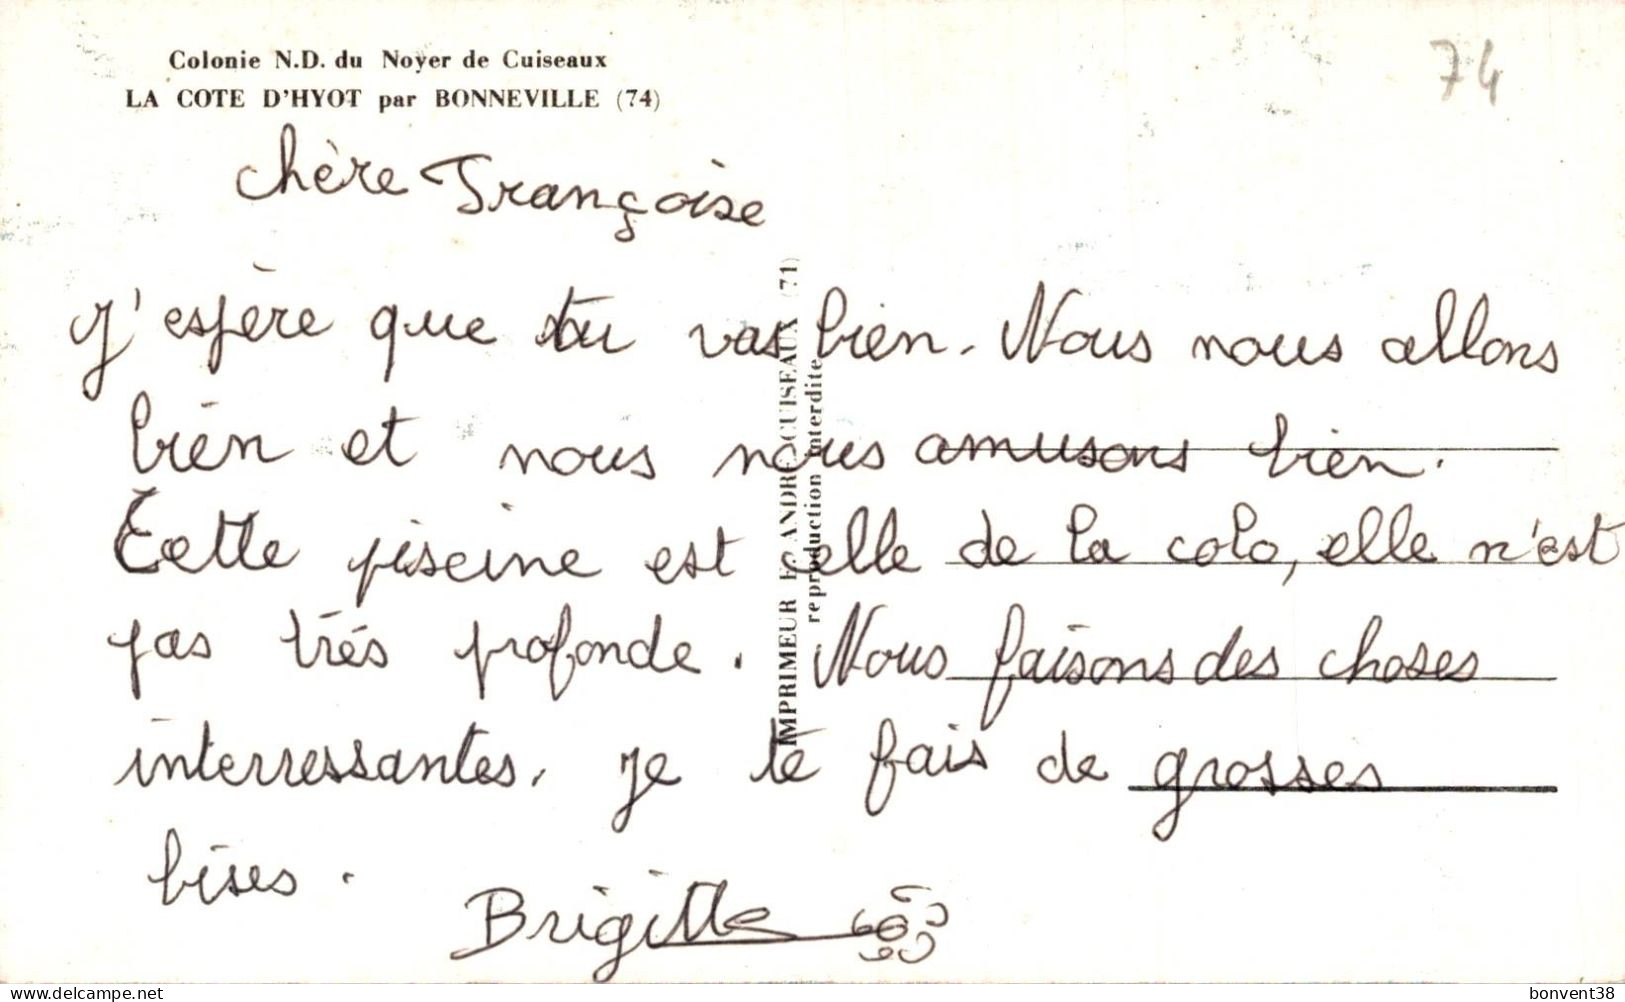 Colonie N.D. du Noyer de Cuiseaux
LA COTE D'HYOT par BONNEVILLE (74)
74
chère Françoise
J'espère que tu vas bien. Nous nous allons
bien et nous nous amusons bien.
Cette piscine est celle de la colo, elle n'est
pas trés profonde. Nous faisons des choses
interressantes. je te fais de grosses
bises.
Brigitte
IMPRIMEUR E. ANDRÉ CUISEAUX (71)
reproduction interdite
delcampe.net
bonvent38